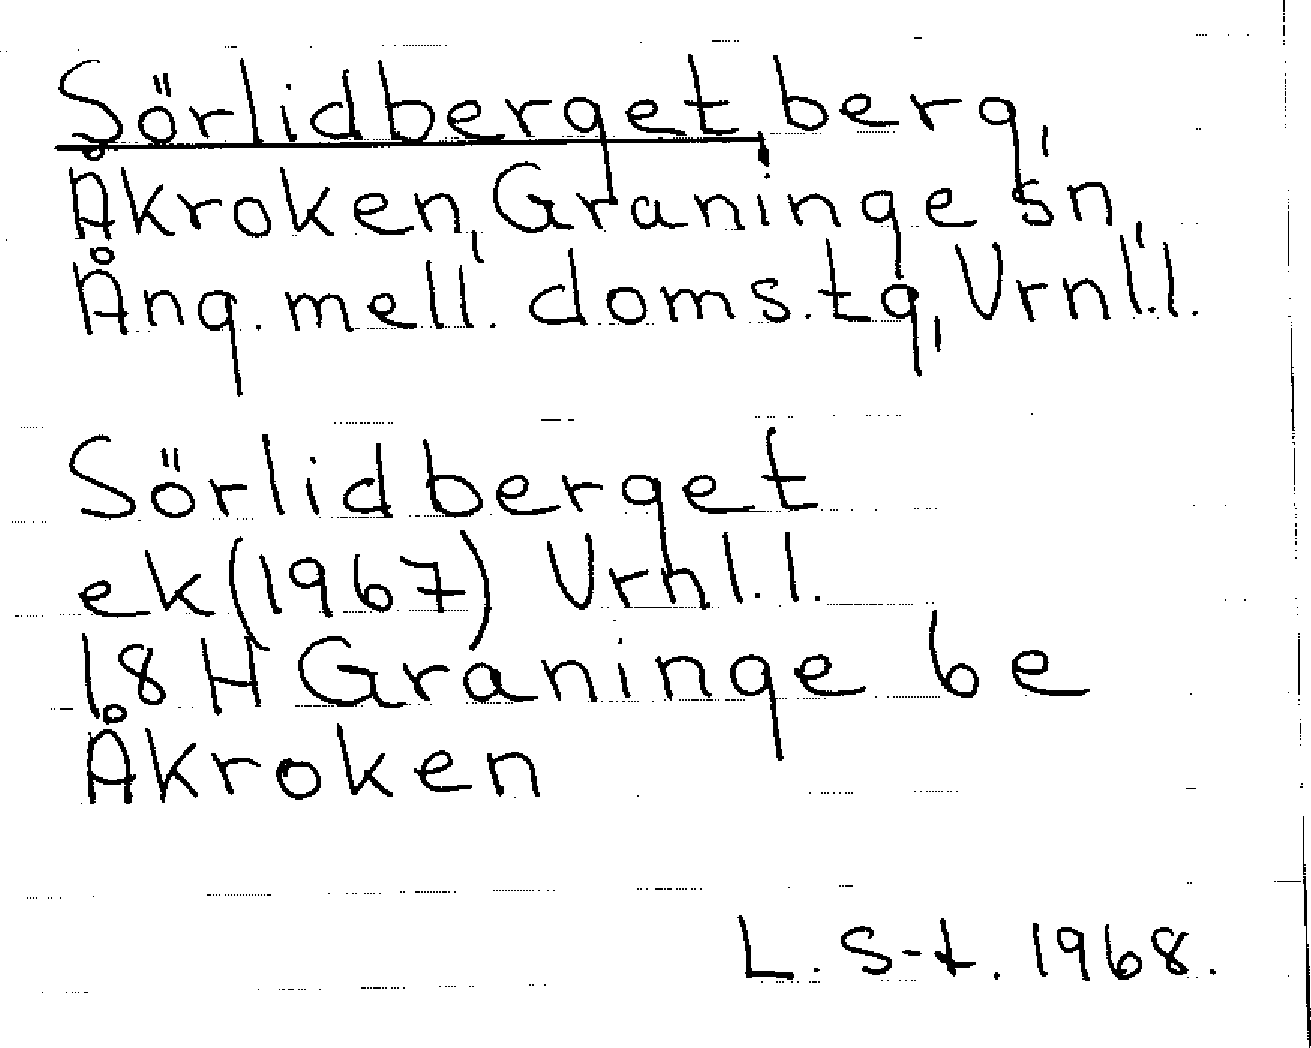 Sörlidberget berg,
Åkroken, Graninge sn,
Ång. mell. doms.tg, Vrnl.l.
Sörlidberget
ek (1967) Vrnl.l.
18 H Graninge 6 e
Åkroken
L. S-t. 1968.